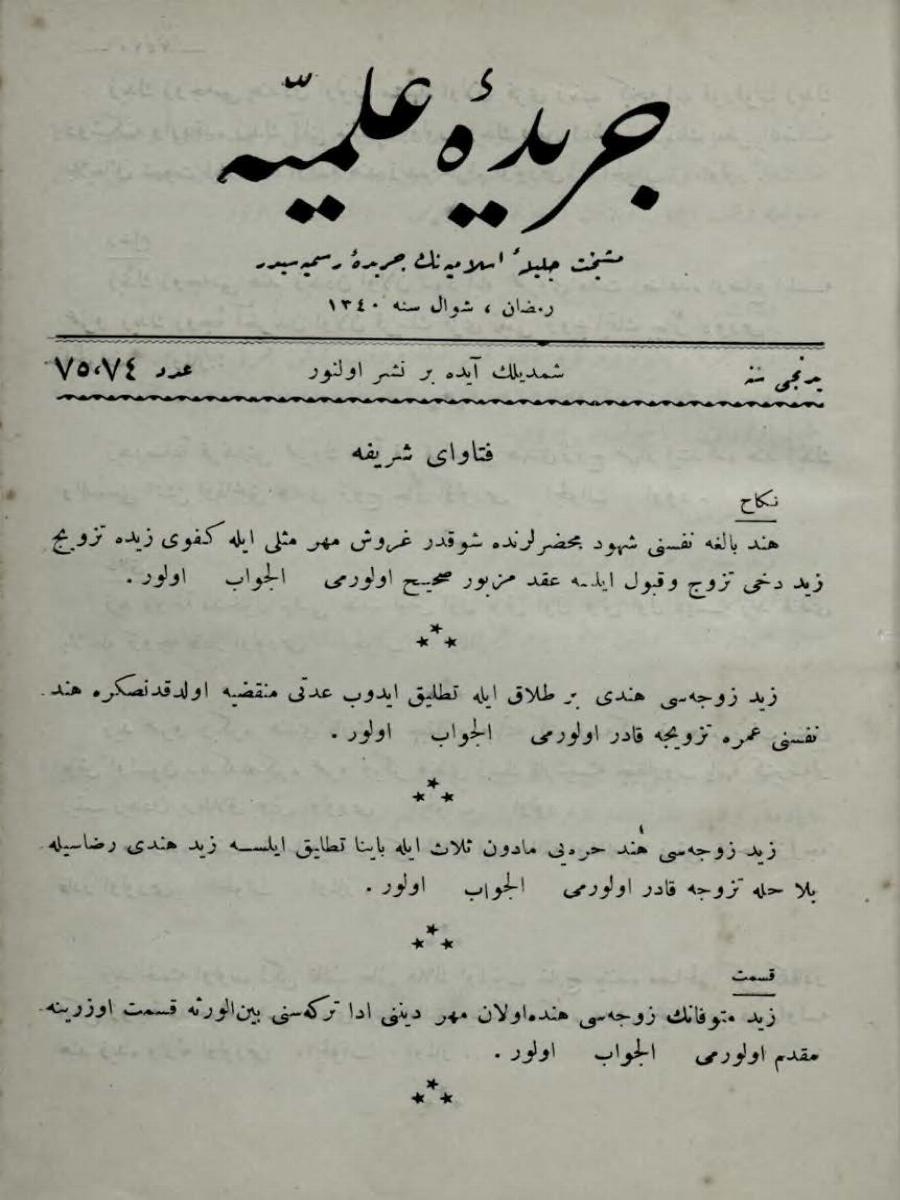 جريدۀ علميّه
مشيخت جليلۀ اسلاميه نك جريدۀ رسميه سيدر
رمضان ، شوال سنه ١٣٤٠
يدنجى سنه شمديلك آيده بر نشر اولنور عدد ٧٥،٧٤
فتاواى شريفه
نكاح
هند بالغه نفسنى شهود محضرلرنده شوقدر غروش مهر مثلى ايله كفوى زيده تزويج
زيد دخى تزوج وقبول ايلسه عقد مزبور صحيح اولورمى الجواب اولور .
***
زيد زوجه‌سى هندى بر طلاق ايله تطليق ايدوب عدتى منقضيه اولدقدنصكره هند
نفسنى عمره تزويجه قادر اولورمى الجواب اولور .
***
زيد زوجه‌سى هند حره‌يى مادون ثلاث ايله باينا تطليق ايلسه زيد هندى رضاسيله
بلا حله تزوجه قادر اولورمى الجواب اولور .
***
قسمت
زيد متوفانك زوجه‌سى هنده اولان مهر دينى ادا تركه‌سنى بين‌الورثه قسمت اوزرينه
مقدم اولورمى الجواب اولور .
***